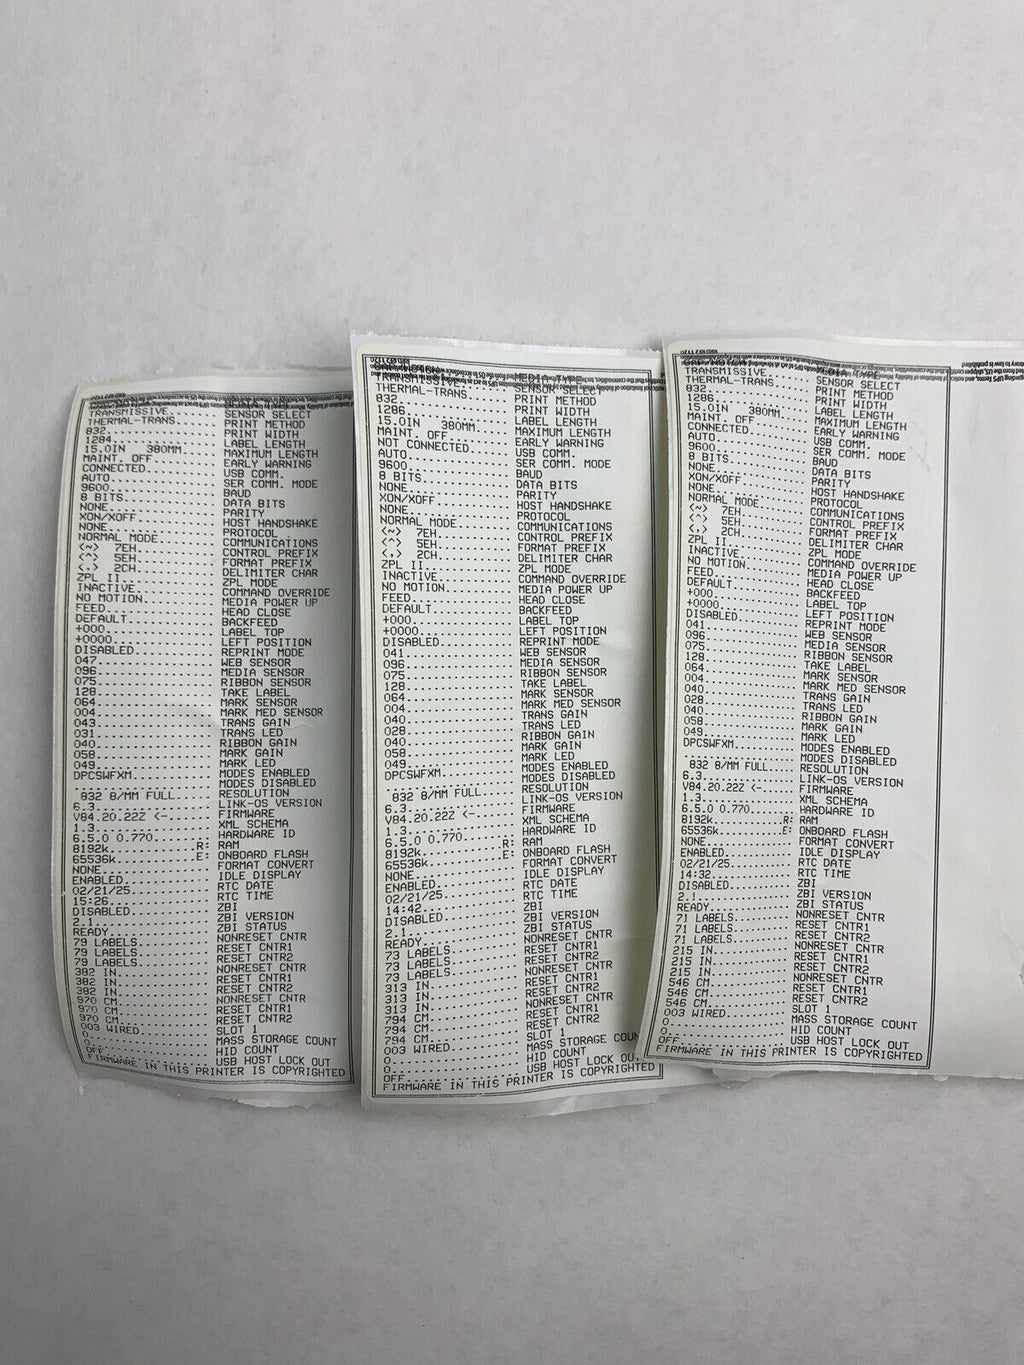 TRANSMISSIVE........ SENSOR SELECT
THERMAL-TRANS....... PRINT METHOD
832................. PRINT WIDTH
1284................ LABEL LENGTH
15.0IN   380MM...... MAXIMUM LENGTH
MAINT. OFF.......... EARLY WARNING
CONNECTED........... USB COMM.
AUTO................ SER COMM. MODE
9600................ BAUD
8 BITS.............. DATA BITS
NONE................ PARITY
XON/XOFF............ HOST HANDSHAKE
NONE................ PROTOCOL
NORMAL MODE......... COMMUNICATIONS
<~>  7EH............ CONTROL PREFIX
<^>  5EH............ FORMAT PREFIX
<,>  2CH............ DELIMITER CHAR
ZPL II.............. ZPL MODE
INACTIVE............ COMMAND OVERRIDE
NO MOTION........... MEDIA POWER UP
FEED................ HEAD CLOSE
DEFAULT............. BACKFEED
+000................ LABEL TOP
+0000............... LEFT POSITION
DISABLED............ REPRINT MODE
047................. WEB SENSOR
096................. MEDIA SENSOR
075................. RIBBON SENSOR
128................. TAKE LABEL
064................. MARK SENSOR
004................. MARK MED SENSOR
043................. TRANS GAIN
031................. TRANS LED
040................. RIBBON GAIN
058................. MARK GAIN
049................. MARK LED
DPCSWFXM............ MODES ENABLED
.................... MODES DISABLED
832 8/MM FULL....... RESOLUTION
6.3................. LINK-OS VERSION
V84.20.22Z <-....... FIRMWARE
1.3................. XML SCHEMA
6.5.0 0.770......... HARDWARE ID
8192k............R: RAM
65536k...........E: ONBOARD FLASH
NONE................ FORMAT CONVERT
ENABLED............. IDLE DISPLAY
02/21/25............ RTC DATE
15:26............... RTC TIME
DISABLED............ ZBI
2.1................. ZBI VERSION
READY............... ZBI STATUS
79 LABELS........... NONRESET CNTR
79 LABELS........... RESET CNTR1
79 LABELS........... RESET CNTR2
382 IN.............. NONRESET CNTR
382 IN.............. RESET CNTR1
382 IN.............. RESET CNTR2
970 CM.............. NONRESET CNTR
970 CM.............. RESET CNTR1
970 CM.............. RESET CNTR2
003 WIRED........... SLOT 1
0................... MASS STORAGE COUNT
0................... HID COUNT
OFF................. USB HOST LOCK OUT
FIRMWARE IN THIS PRINTER IS COPYRIGHTED
MEDIA TYPE
TRANSMISSIVE........ SENSOR SELECT
THERMAL-TRANS....... PRINT METHOD
832................. PRINT WIDTH
1286................ LABEL LENGTH
15.0IN   380MM...... MAXIMUM LENGTH
MAINT. OFF.......... EARLY WARNING
NOT CONNECTED....... USB COMM.
AUTO................ SER COMM. MODE
9600................ BAUD
8 BITS.............. DATA BITS
NONE................ PARITY
XON/XOFF............ HOST HANDSHAKE
NONE................ PROTOCOL
NORMAL MODE......... COMMUNICATIONS
<~>  7EH............ CONTROL PREFIX
<^>  5EH............ FORMAT PREFIX
<,>  2CH............ DELIMITER CHAR
ZPL II.............. ZPL MODE
INACTIVE............ COMMAND OVERRIDE
NO MOTION........... MEDIA POWER UP
FEED................ HEAD CLOSE
DEFAULT............. BACKFEED
+000................ LABEL TOP
+0000............... LEFT POSITION
DISABLED............ REPRINT MODE
041................. WEB SENSOR
096................. MEDIA SENSOR
075................. RIBBON SENSOR
128................. TAKE LABEL
064................. MARK SENSOR
004................. MARK MED SENSOR
040................. TRANS GAIN
028................. TRANS LED
040................. RIBBON GAIN
058................. MARK GAIN
049................. MARK LED
DPCSWFXM............ MODES ENABLED
.................... MODES DISABLED
832 8/MM FULL....... RESOLUTION
6.3................. LINK-OS VERSION
V84.20.22Z <-....... FIRMWARE
1.3................. XML SCHEMA
6.5.0 0.770......... HARDWARE ID
8192k............R: RAM
65536k...........E: ONBOARD FLASH
NONE................ FORMAT CONVERT
ENABLED............. IDLE DISPLAY
02/21/25............ RTC DATE
14:42............... RTC TIME
DISABLED............ ZBI
2.1................. ZBI VERSION
READY............... ZBI STATUS
73 LABELS........... NONRESET CNTR
73 LABELS........... RESET CNTR1
73 LABELS........... RESET CNTR2
313 IN.............. NONRESET CNTR
313 IN.............. RESET CNTR1
313 IN.............. RESET CNTR2
794 CM.............. NONRESET CNTR
794 CM.............. RESET CNTR1
794 CM.............. RESET CNTR2
003 WIRED........... SLOT 1
0................... MASS STORAGE COUN
0................... HID COUNT
OFF................. USB HOST LOCK OU
FIRMWARE IN THIS PRINTER IS COPYRIGHTED
MEDIA TYPE
TRANSMISSIVE........ SENSOR SELECT
THERMAL-TRANS....... PRINT METHOD
832................. PRINT WIDTH
1286................ LABEL LENGTH
15.0IN   380MM...... MAXIMUM LENGTH
MAINT. OFF.......... EARLY WARNING
CONNECTED........... USB COMM.
AUTO................ SER COMM. MODE
9600................ BAUD
8 BITS.............. DATA BITS
NONE................ PARITY
XON/XOFF............ HOST HANDSHAKE
NONE................ PROTOCOL
NORMAL MODE......... COMMUNICATIONS
<~>  7EH............ CONTROL PREFIX
<^>  5EH............ FORMAT PREFIX
<,>  2CH............ DELIMITER CHAR
ZPL II.............. ZPL MODE
INACTIVE............ COMMAND OVERRIDE
NO MOTION........... MEDIA POWER UP
FEED................ HEAD CLOSE
DEFAULT............. BACKFEED
+000................ LABEL TOP
+0000............... LEFT POSITION
DISABLED............ REPRINT MODE
041................. WEB SENSOR
096................. MEDIA SENSOR
075................. RIBBON SENSOR
128................. TAKE LABEL
064................. MARK SENSOR
004................. MARK MED SENSOR
040................. TRANS GAIN
028................. TRANS LED
040................. RIBBON GAIN
058................. MARK GAIN
049................. MARK LED
DPCSWFXM............ MODES ENABLED
.................... MODES DISABLED
832 8/MM FULL....... RESOLUTION
6.3................. LINK-OS VERSION
V84.20.22Z <-....... FIRMWARE
1.3................. XML SCHEMA
6.5.0 0.770......... HARDWARE ID
8192k............R: RAM
65536k...........E: ONBOARD FLASH
NONE................ FORMAT CONVERT
ENABLED............. IDLE DISPLAY
02/21/25............ RTC DATE
14:32............... RTC TIME
DISABLED............ ZBI
2.1................. ZBI VERSION
READY............... ZBI STATUS
71 LABELS........... NONRESET CNTR
71 LABELS........... RESET CNTR1
71 LABELS........... RESET CNTR2
215 IN.............. NONRESET CNTR
215 IN.............. RESET CNTR1
215 IN.............. RESET CNTR2
546 CM.............. NONRESET CNTR
546 CM.............. RESET CNTR1
546 CM.............. RESET CNTR2
003 WIRED........... SLOT 1
0................... MASS STORAGE COUNT
0................... HID COUNT
OFF................. USB HOST LOCK OUT
FIRMWARE IN THIS PRINTER IS COPYRIGHTED